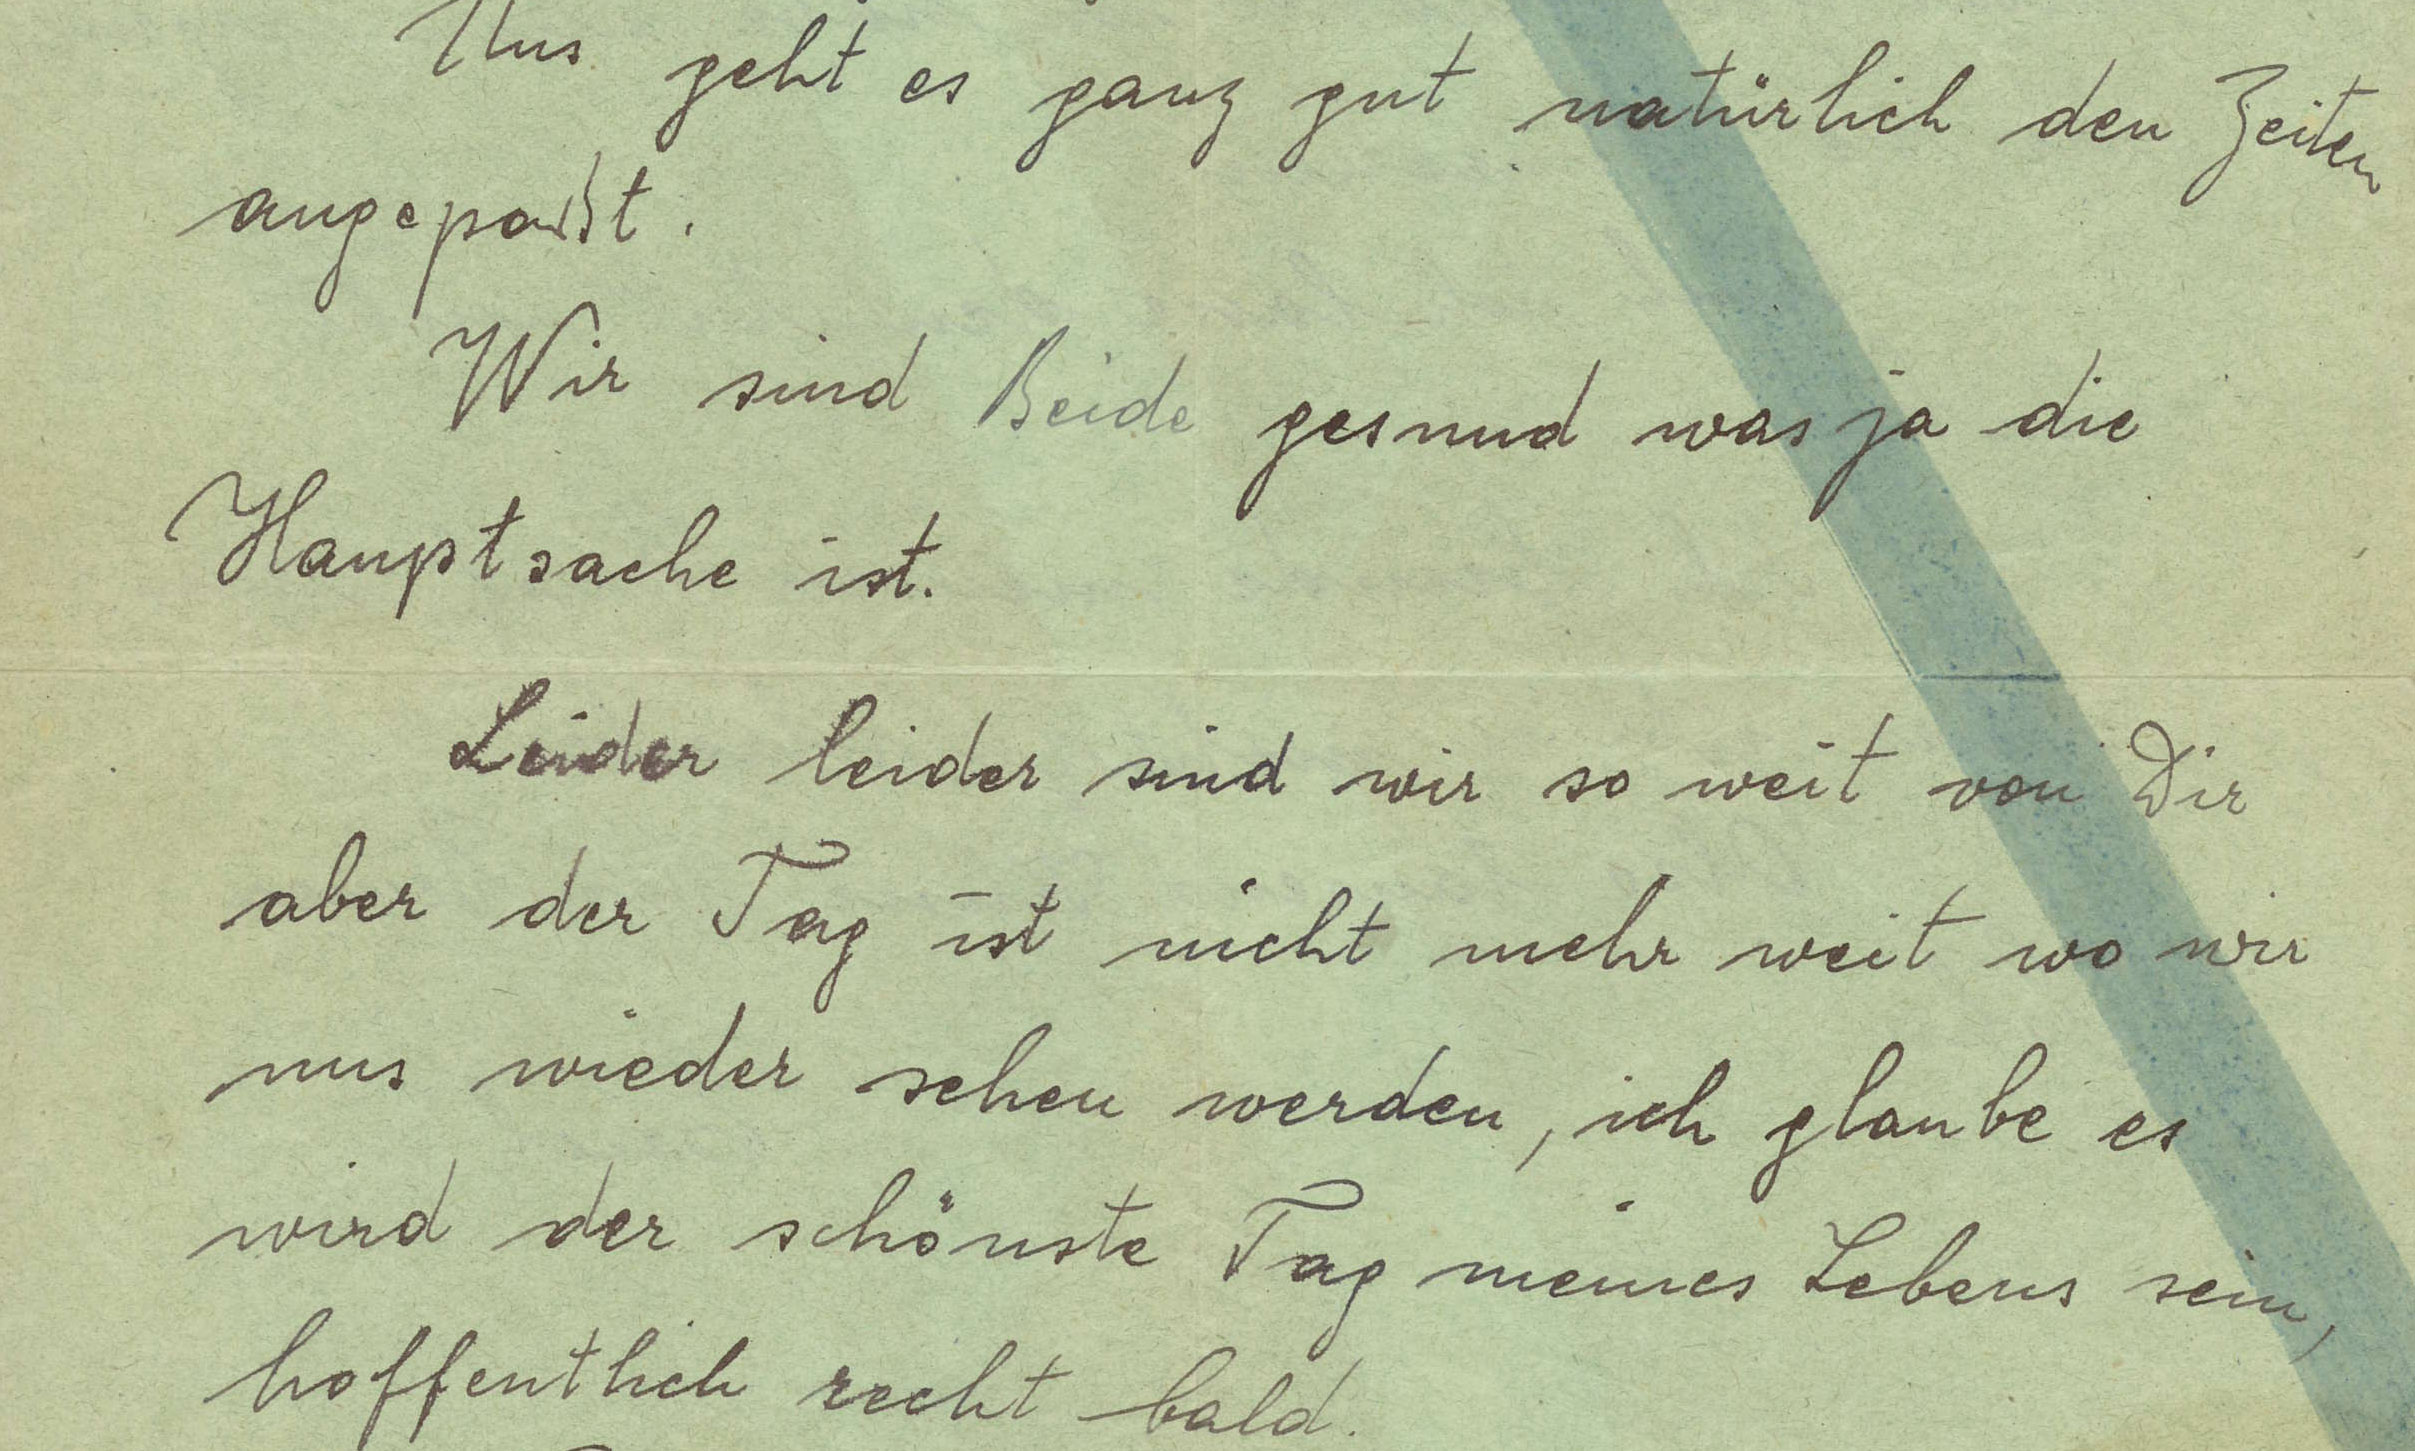 Uns geht es ganz gut natürlich den Zeiten
angepaßt.
Wir sind Beide gesund was ja die
Hauptsache ist.
Leider leider sind wir so weit von Dir
aber der Tag ist nicht mehr weit wo wir
uns wieder sehen werden, ich glaube es
wird der schönste Tag meines Lebens sein,
hoffentlich recht bald.